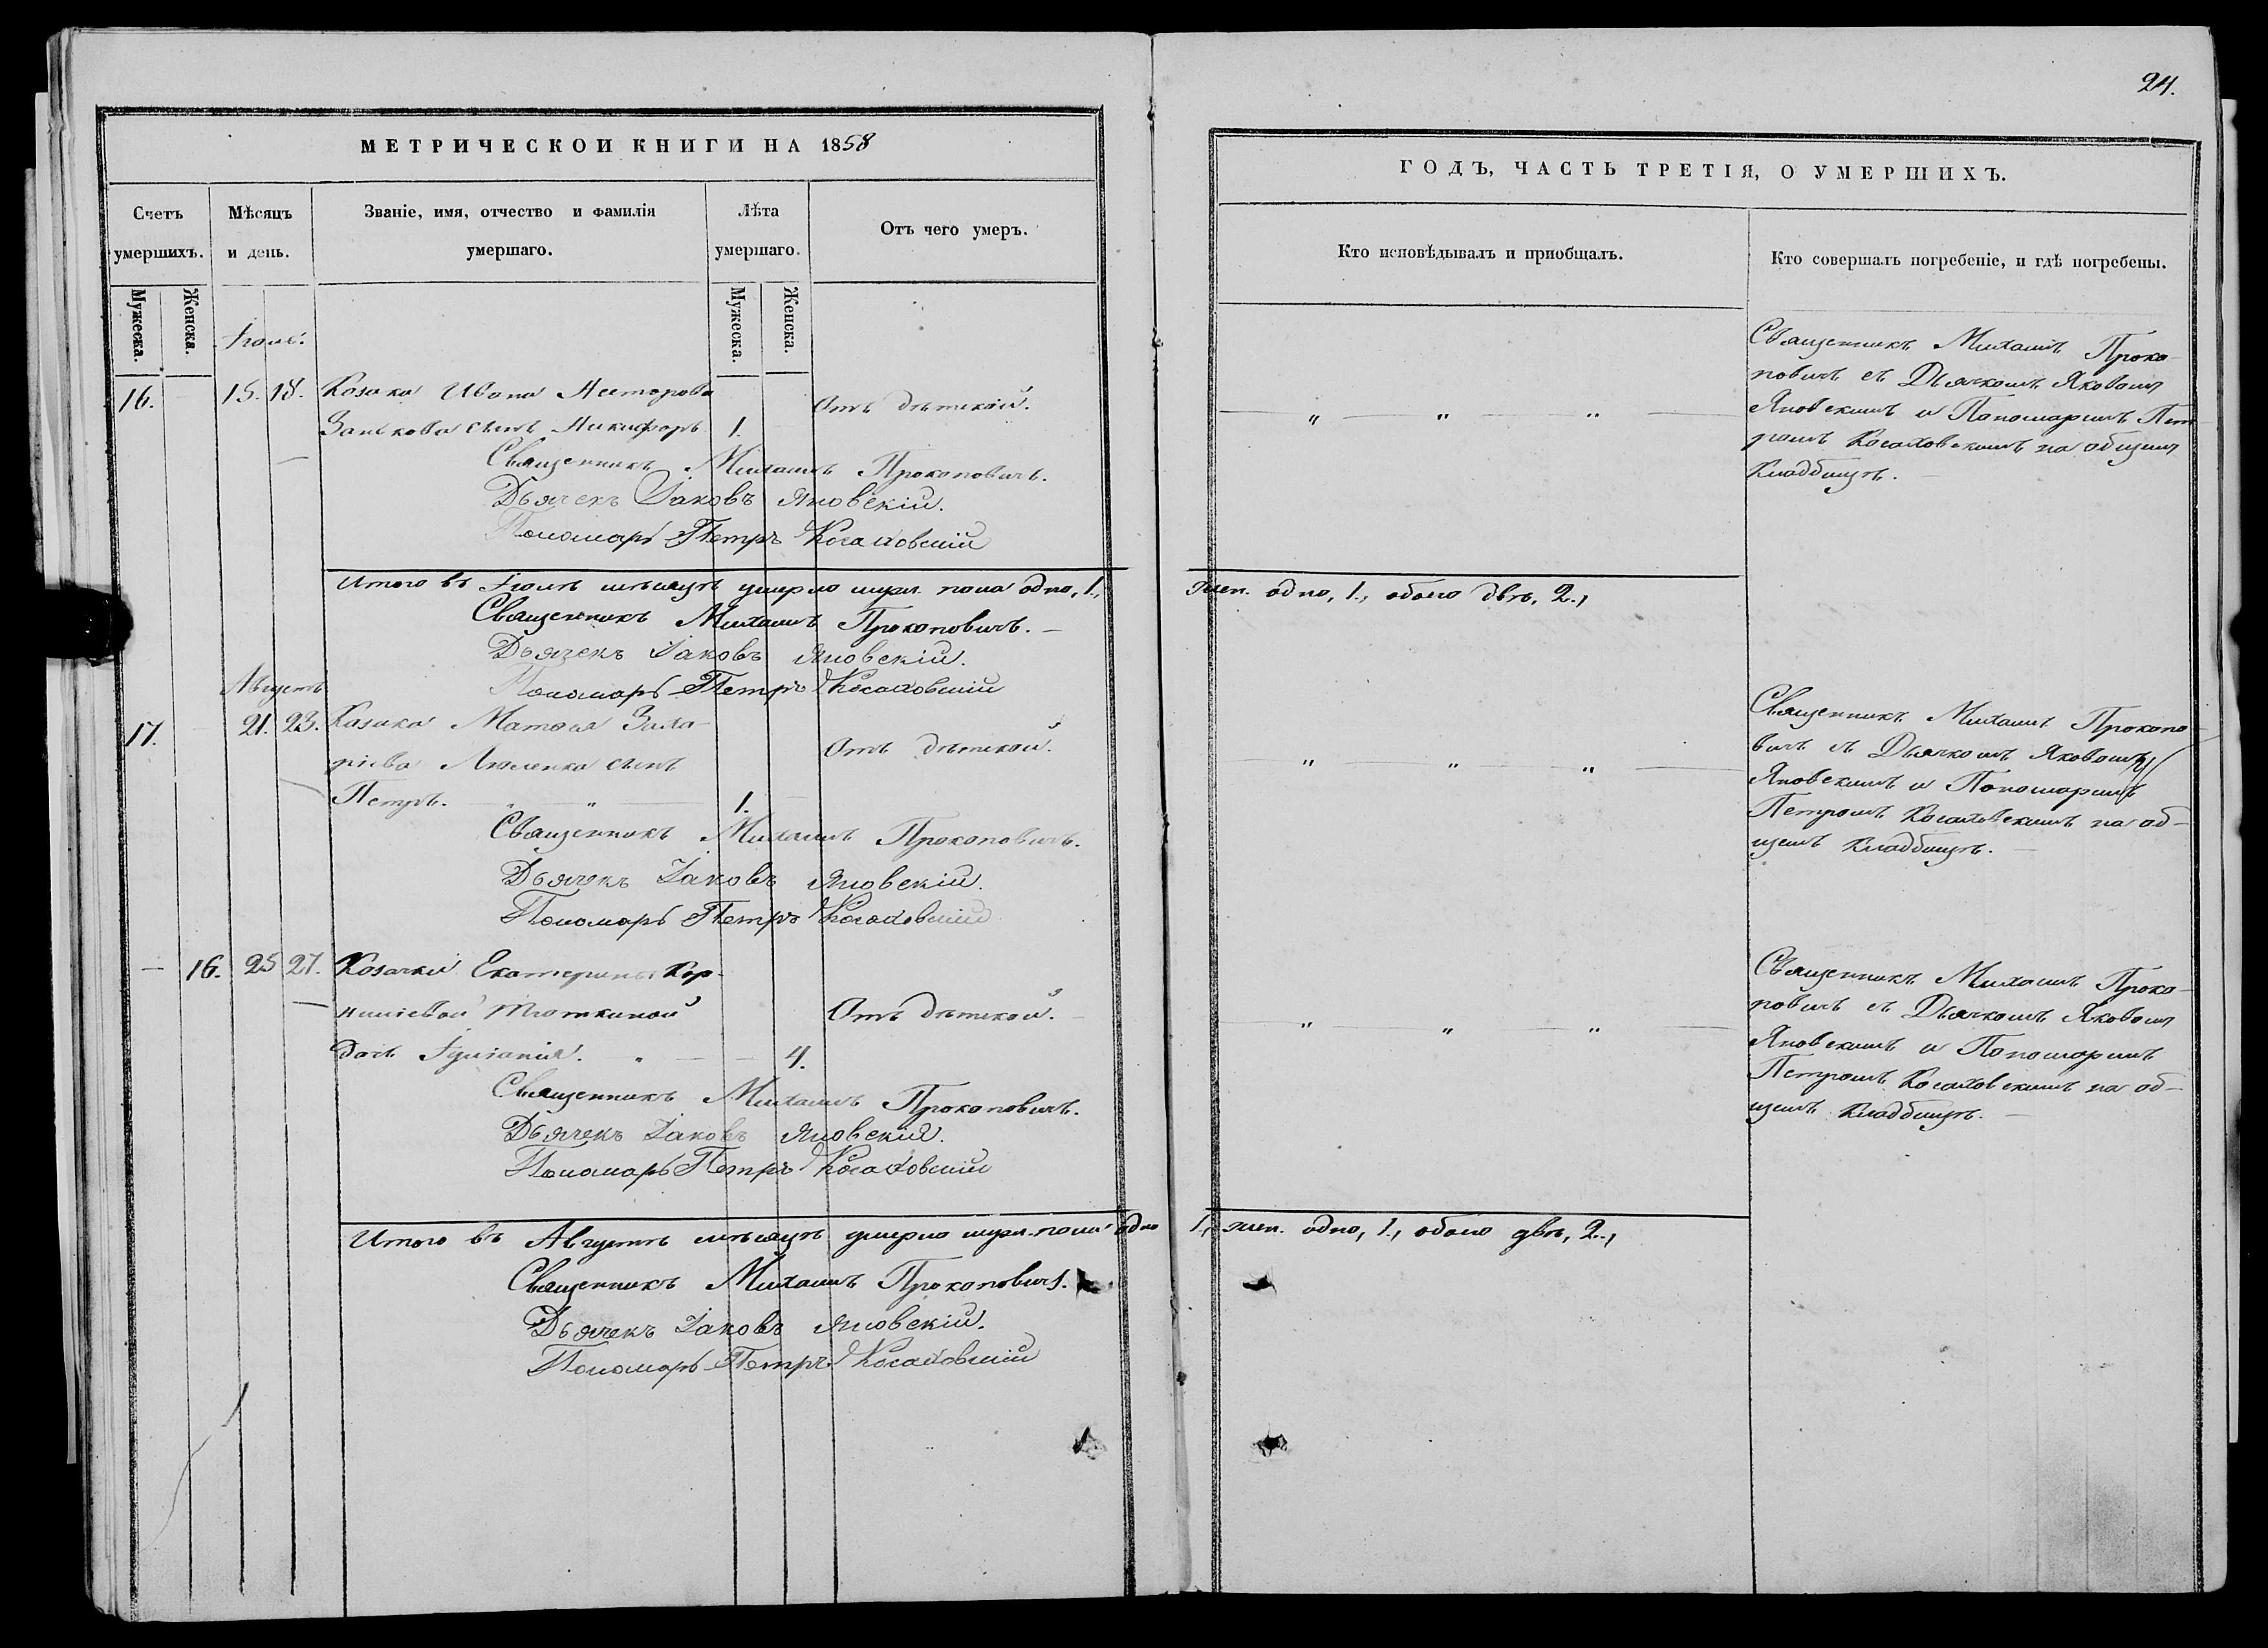 24.
МЕТРИЧЕСКОЙ КНИГИ НА 1858
Счетъ умершихъ.
Мѣсяцъ и день.
Званіе, имя, отчество и фамилія умершаго.
Лѣта умершаго.
Отъ чего умеръ.
Мужеска.
Женска.
Мужеска.
Женска.
Іюль.
16. 15. 18. Козака Ивана Несторова
Занькова сынъ Никифоръ 1. Отъ дѣтской.
Священникъ Михаилъ Прокоповичъ.
Дьячекъ Іаковъ Яновскій.
Пономарь Петръ Косаковскій
Итого въ Іюлѣ мѣсяцѣ умерло муж. пола одно, 1.,
Священникъ Михаилъ Прокоповичъ.
Дьячекъ Іаковъ Яновскій.
Пономарь Петръ Косаковскій
Августъ
17. 21. 23. Козака Матѳея Заха-
ріева сынъ Отъ дѣтской.
Петръ. 1.
Священникъ Михаилъ Прокоповичъ.
Дьячекъ Іаковъ Яновскій.
Пономарь Петръ Косаковскій
16. 25 27. Козачки Екатерины Кор-
ниліевой Отъ дѣтской.
дочь 4.
Священникъ Михаилъ Прокоповичъ.
Дьячекъ Іаковъ Яновскій.
Пономарь Петръ Косаковскій
Итого въ Августѣ мѣсяцѣ умерло муж. пола одно
Священникъ Михаилъ Прокоповичъ.
Дьячекъ Іаковъ Яновскій.
Пономарь Петръ Косаковскій
ГОДЪ, ЧАСТЬ ТРЕТІЯ, О УМЕРШИХЪ.
Кто исповѣдывалъ и приобщалъ.
Кто совершалъ погребеніе, и гдѣ погребены.
Священникъ Михаилъ Проко-
повичъ съ Дьячкомъ Яковомъ
Яновскимъ и Пономаремъ Пет-
ромъ Косаковскимъ на общемъ
кладбищѣ.
жен. одно, 1., обоего двѣ, 2.,
Священникъ Михаилъ Прокопо-
вичъ съ Дьячкомъ Яковомъ
Яновскимъ и Пономаремъ
Петромъ Косаковскимъ на об-
щемъ кладбищѣ.
Священникъ Михаилъ Проко-
повичъ съ Дьячкомъ Яковомъ
Яновскимъ и Пономаремъ
Петромъ Косаковскимъ на об-
щемъ кладбищѣ.
1., жен. одно, 1., обоего двѣ, 2.,